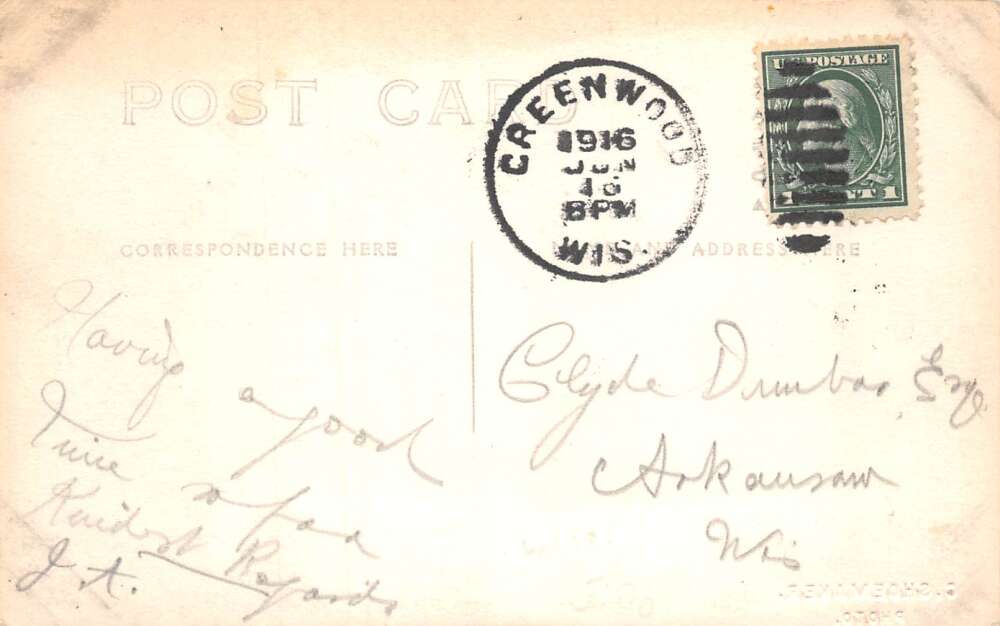 POST CARD
GREENWOOD
1916
JUN
16
8PM
WIS.
U.S. POSTAGE
1 CENT 1
CORRESPONDENCE HERE
NAME AND ADDRESS HERE
Having
a good
Time
so far
Kindest Regards
J. A.
Clyde Dunbar, Esq
Arkansaw
Wis
PHOTO.